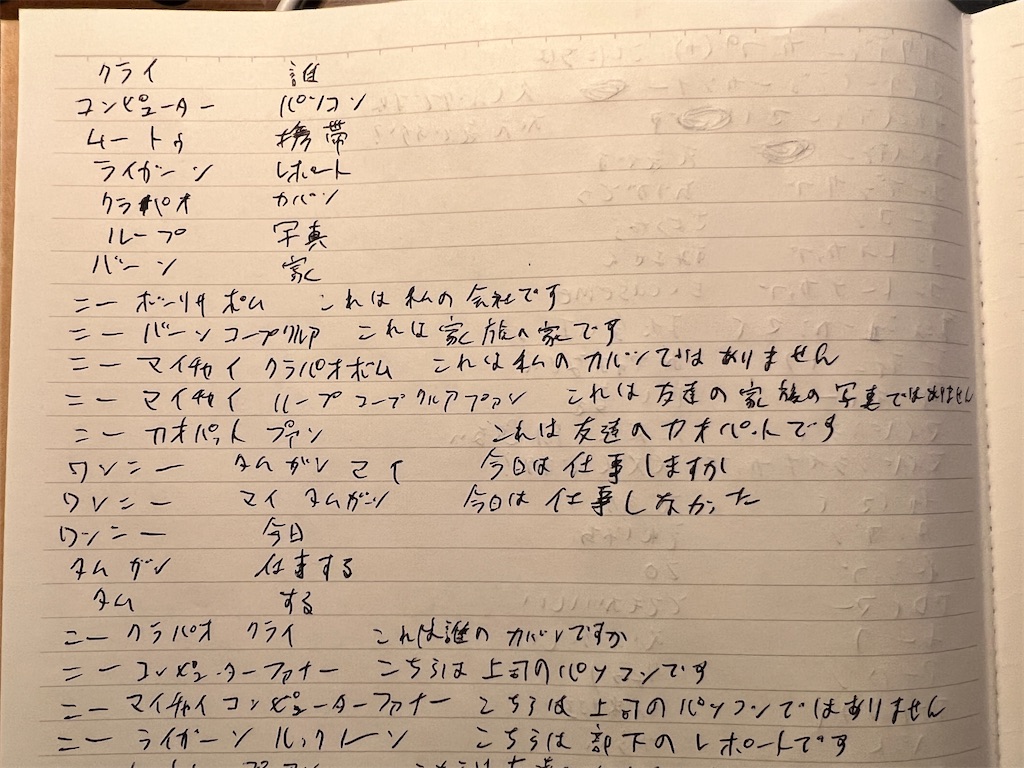 クライ 誰
コンピューター パソコン
ムートゥ 携帯
ライガーン レポート
クラパオ カバン
ループ 写真
バーン 家
ニー ボーリサ ポム これは 私の 会社です
ニー バーンコープクルア これは 家族の家です
ニー マイチャイ クラパオポム これは私のカバンではありません
ニー マイチャイ ループコープクルアプアン これは友達の家族の写真ではありません
ニー カオパット プアン これは友達のカオパットです
ワンニー タムガン マイ 今日は仕事しますか
ワンニー マイ タムガーン 今日は仕事しなかった
ワンニー 今日
タム ガン 仕事する
タム する
ニー クラパオ クライ これは誰のカバンですか
ニー コンピューターファナー こちらは上司のパソコンです
ニー マイチャイコンピューターファナー こちらは上司のパソコンではありません
ニー ライガーン ルックレーン こちらは部下のレポートです